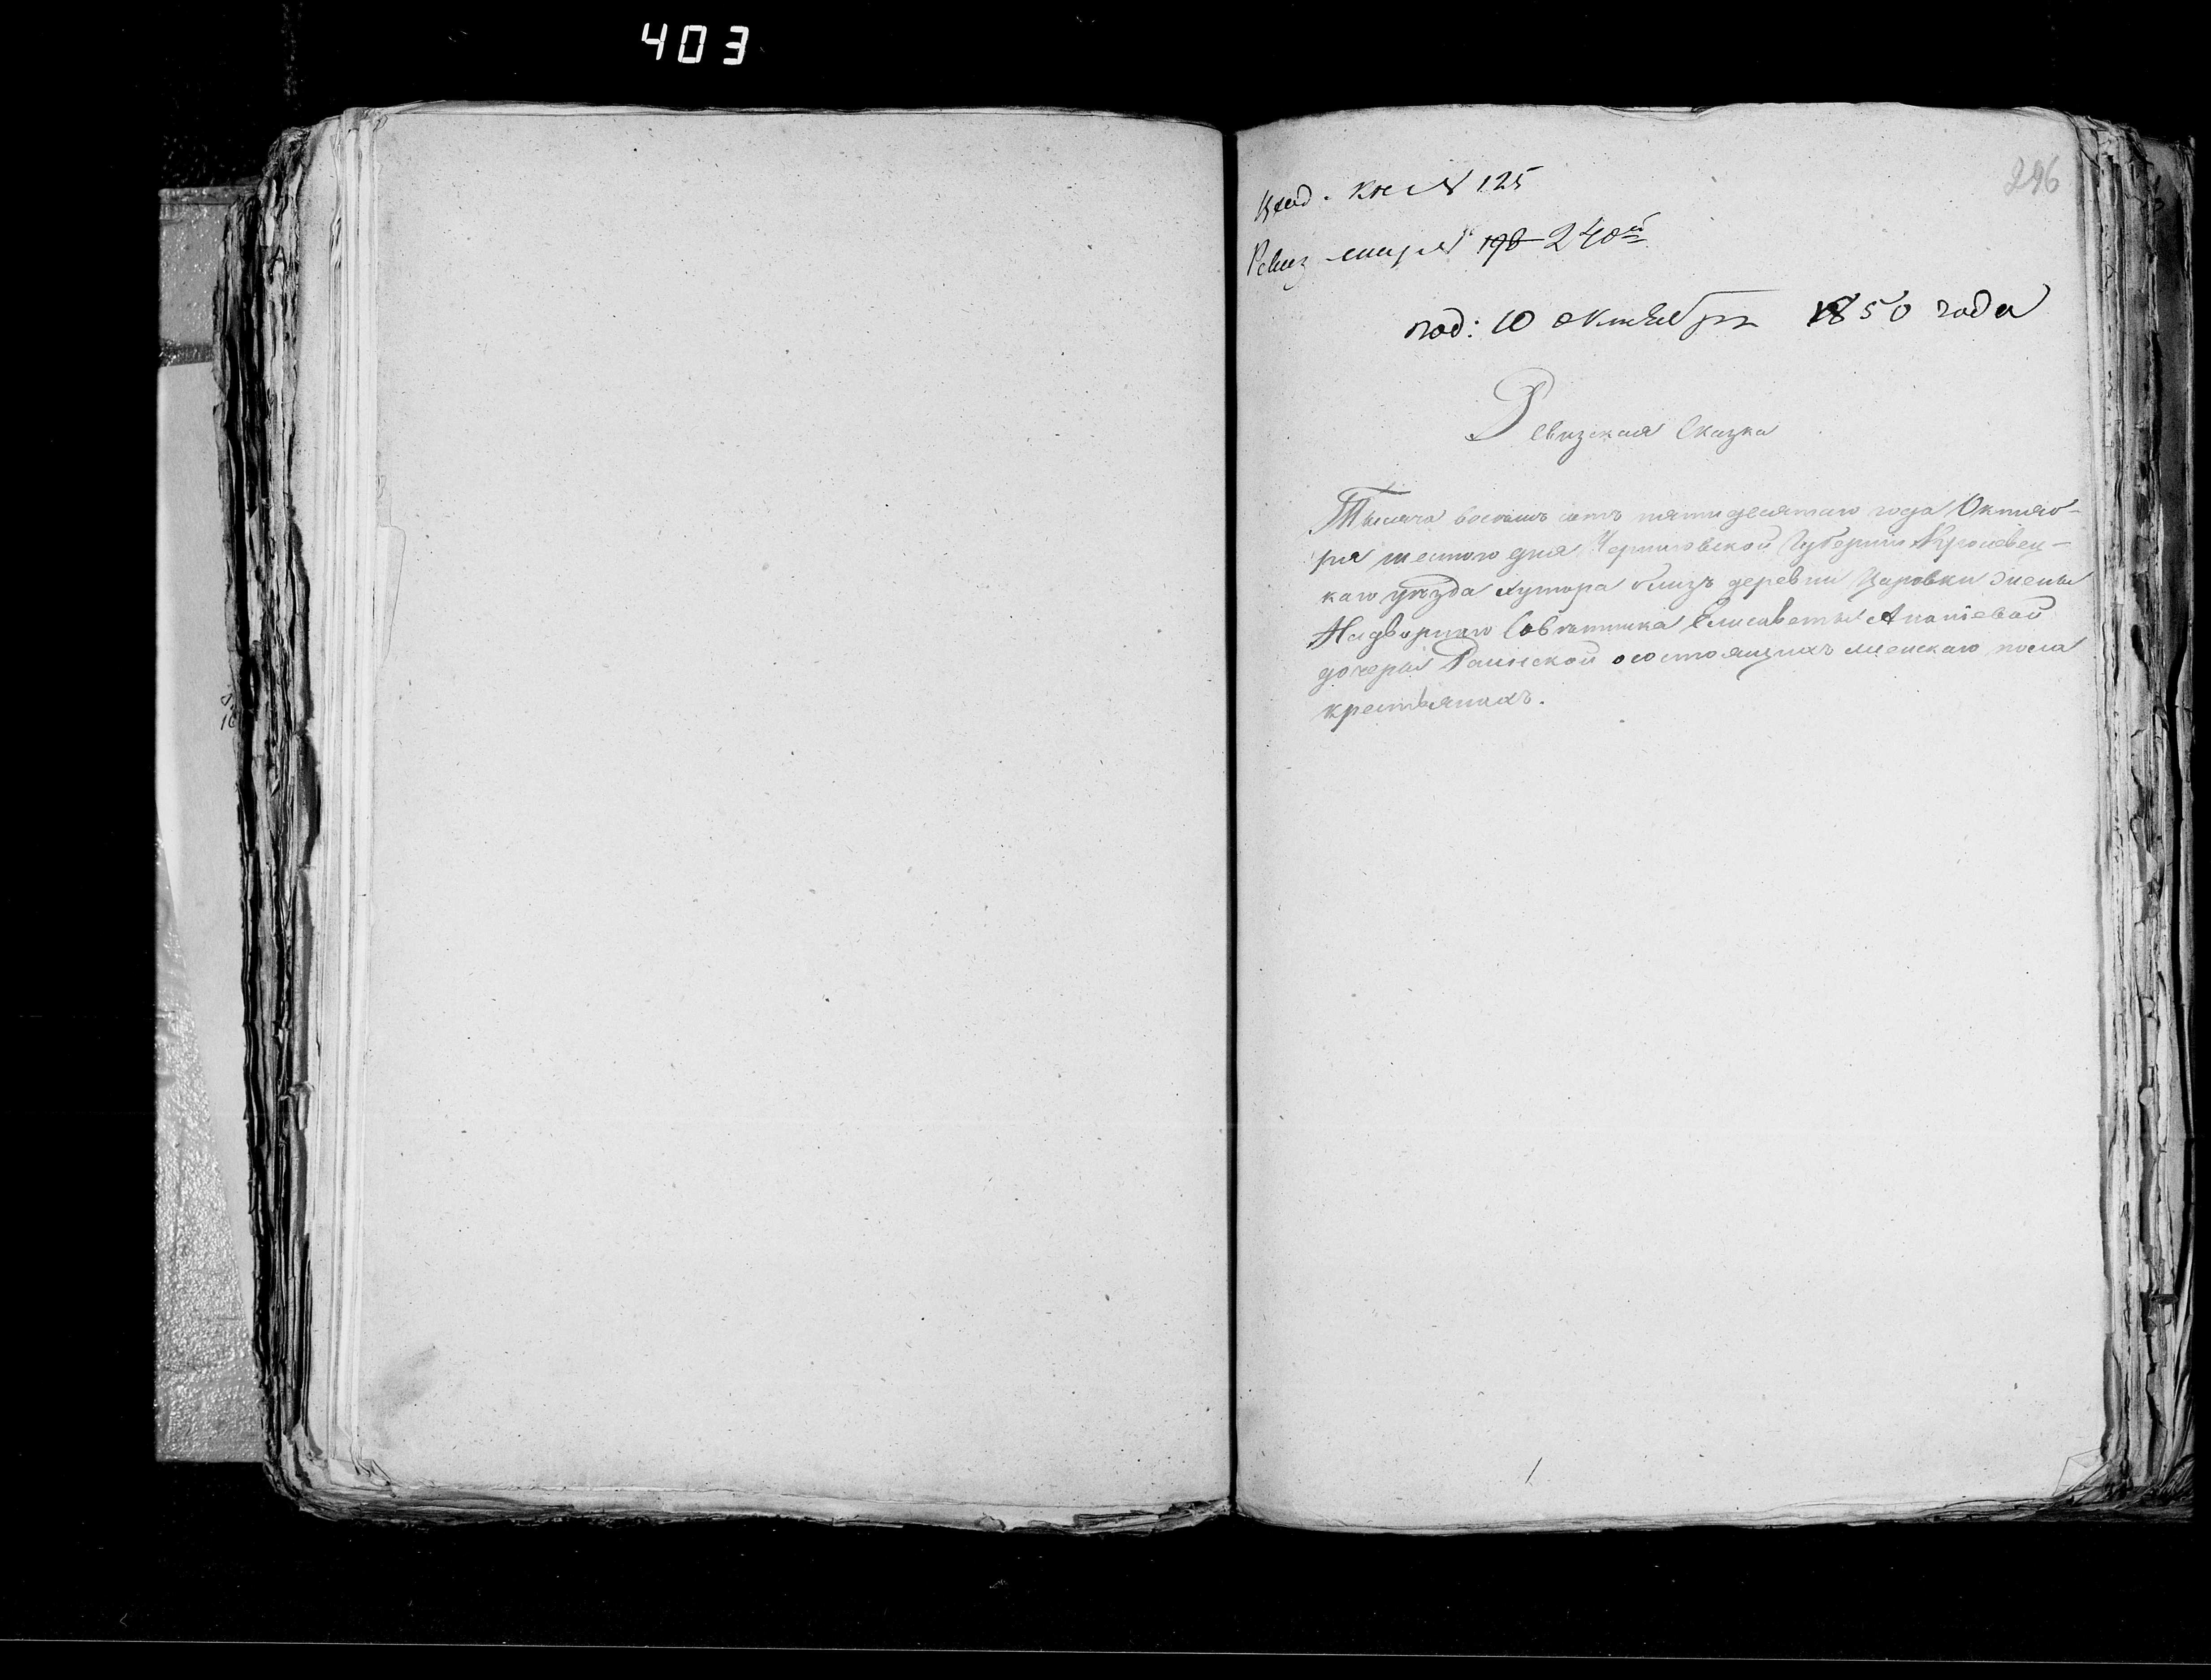 403
296
Вход. кн № 125
Ревиз № 198 240й
под: 10 октября 1850 года
Ревизская Сказка
Тысяча восемь сотъ пятидесятаго года Октяб-
ря шестого дня Черниговской Губерніи Кролевец-
каго уѣзда хутора близъ деревни Царовки жены
Надворнаго Совѣтника Елисаветы Ананіевой
дочери о состоящихъ мужескаго пола
крестьянахъ.